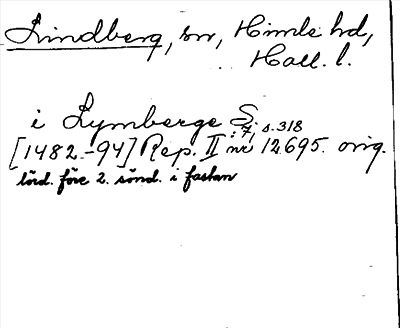 Lindberg, sn, Himle hd,
Hall. l.
i Lymberge S.
: 7, s. 318
[1482-94] Rep. II nr 12695. orig.
lörd. före 2. sönd. i fastan